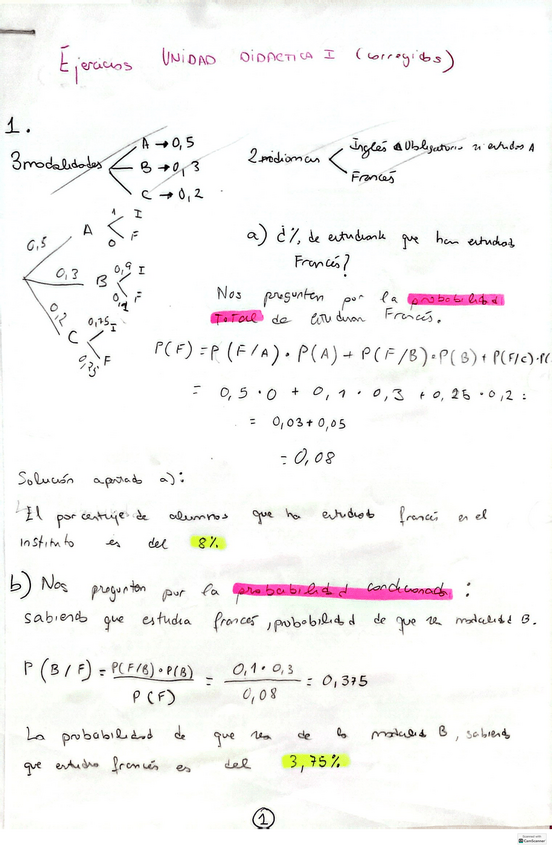 Ejercicios UNIDAD DIDACTICA I (corregidos)
1.
3 modalidades
A → 0,5
B → 0,3
C → 0,2
2 idiomas
Inglés Obligatorio si estudios A
Francés
0,5 A 1 I
0 F
0,3 B 0,9 I
0,1 F
0,2 C 0,75 I
0,25 F
a) ¿%, de estudiante que han estudiado
Francés?
Nos preguntan por la probabilidad
TOTAL de estudiar Francés.
P(F) = P(F/A) · P(A) + P(F/B) · P(B) + P(F/C) · P(
= 0,5 · 0 + 0,1 · 0,3 + 0,25 · 0,2 =
= 0,03 + 0,05
= 0,08
Solución apartado a):
El porcentaje de alumnos que ha estudiado francés en el
instituto es del 8%
b) Nos preguntan por la probabilidad condicionada :
sabiendo que estudia francés, probabilidad de que sea modalidad B.
P(B/F) = P(F/B) · P(B) / P(F) = 0,1 · 0,3 / 0,08 = 0,375
La probabilidad de que sea de la modalidad B, sabiendo
que estudia francés es del 3,75%
1
CamScanner